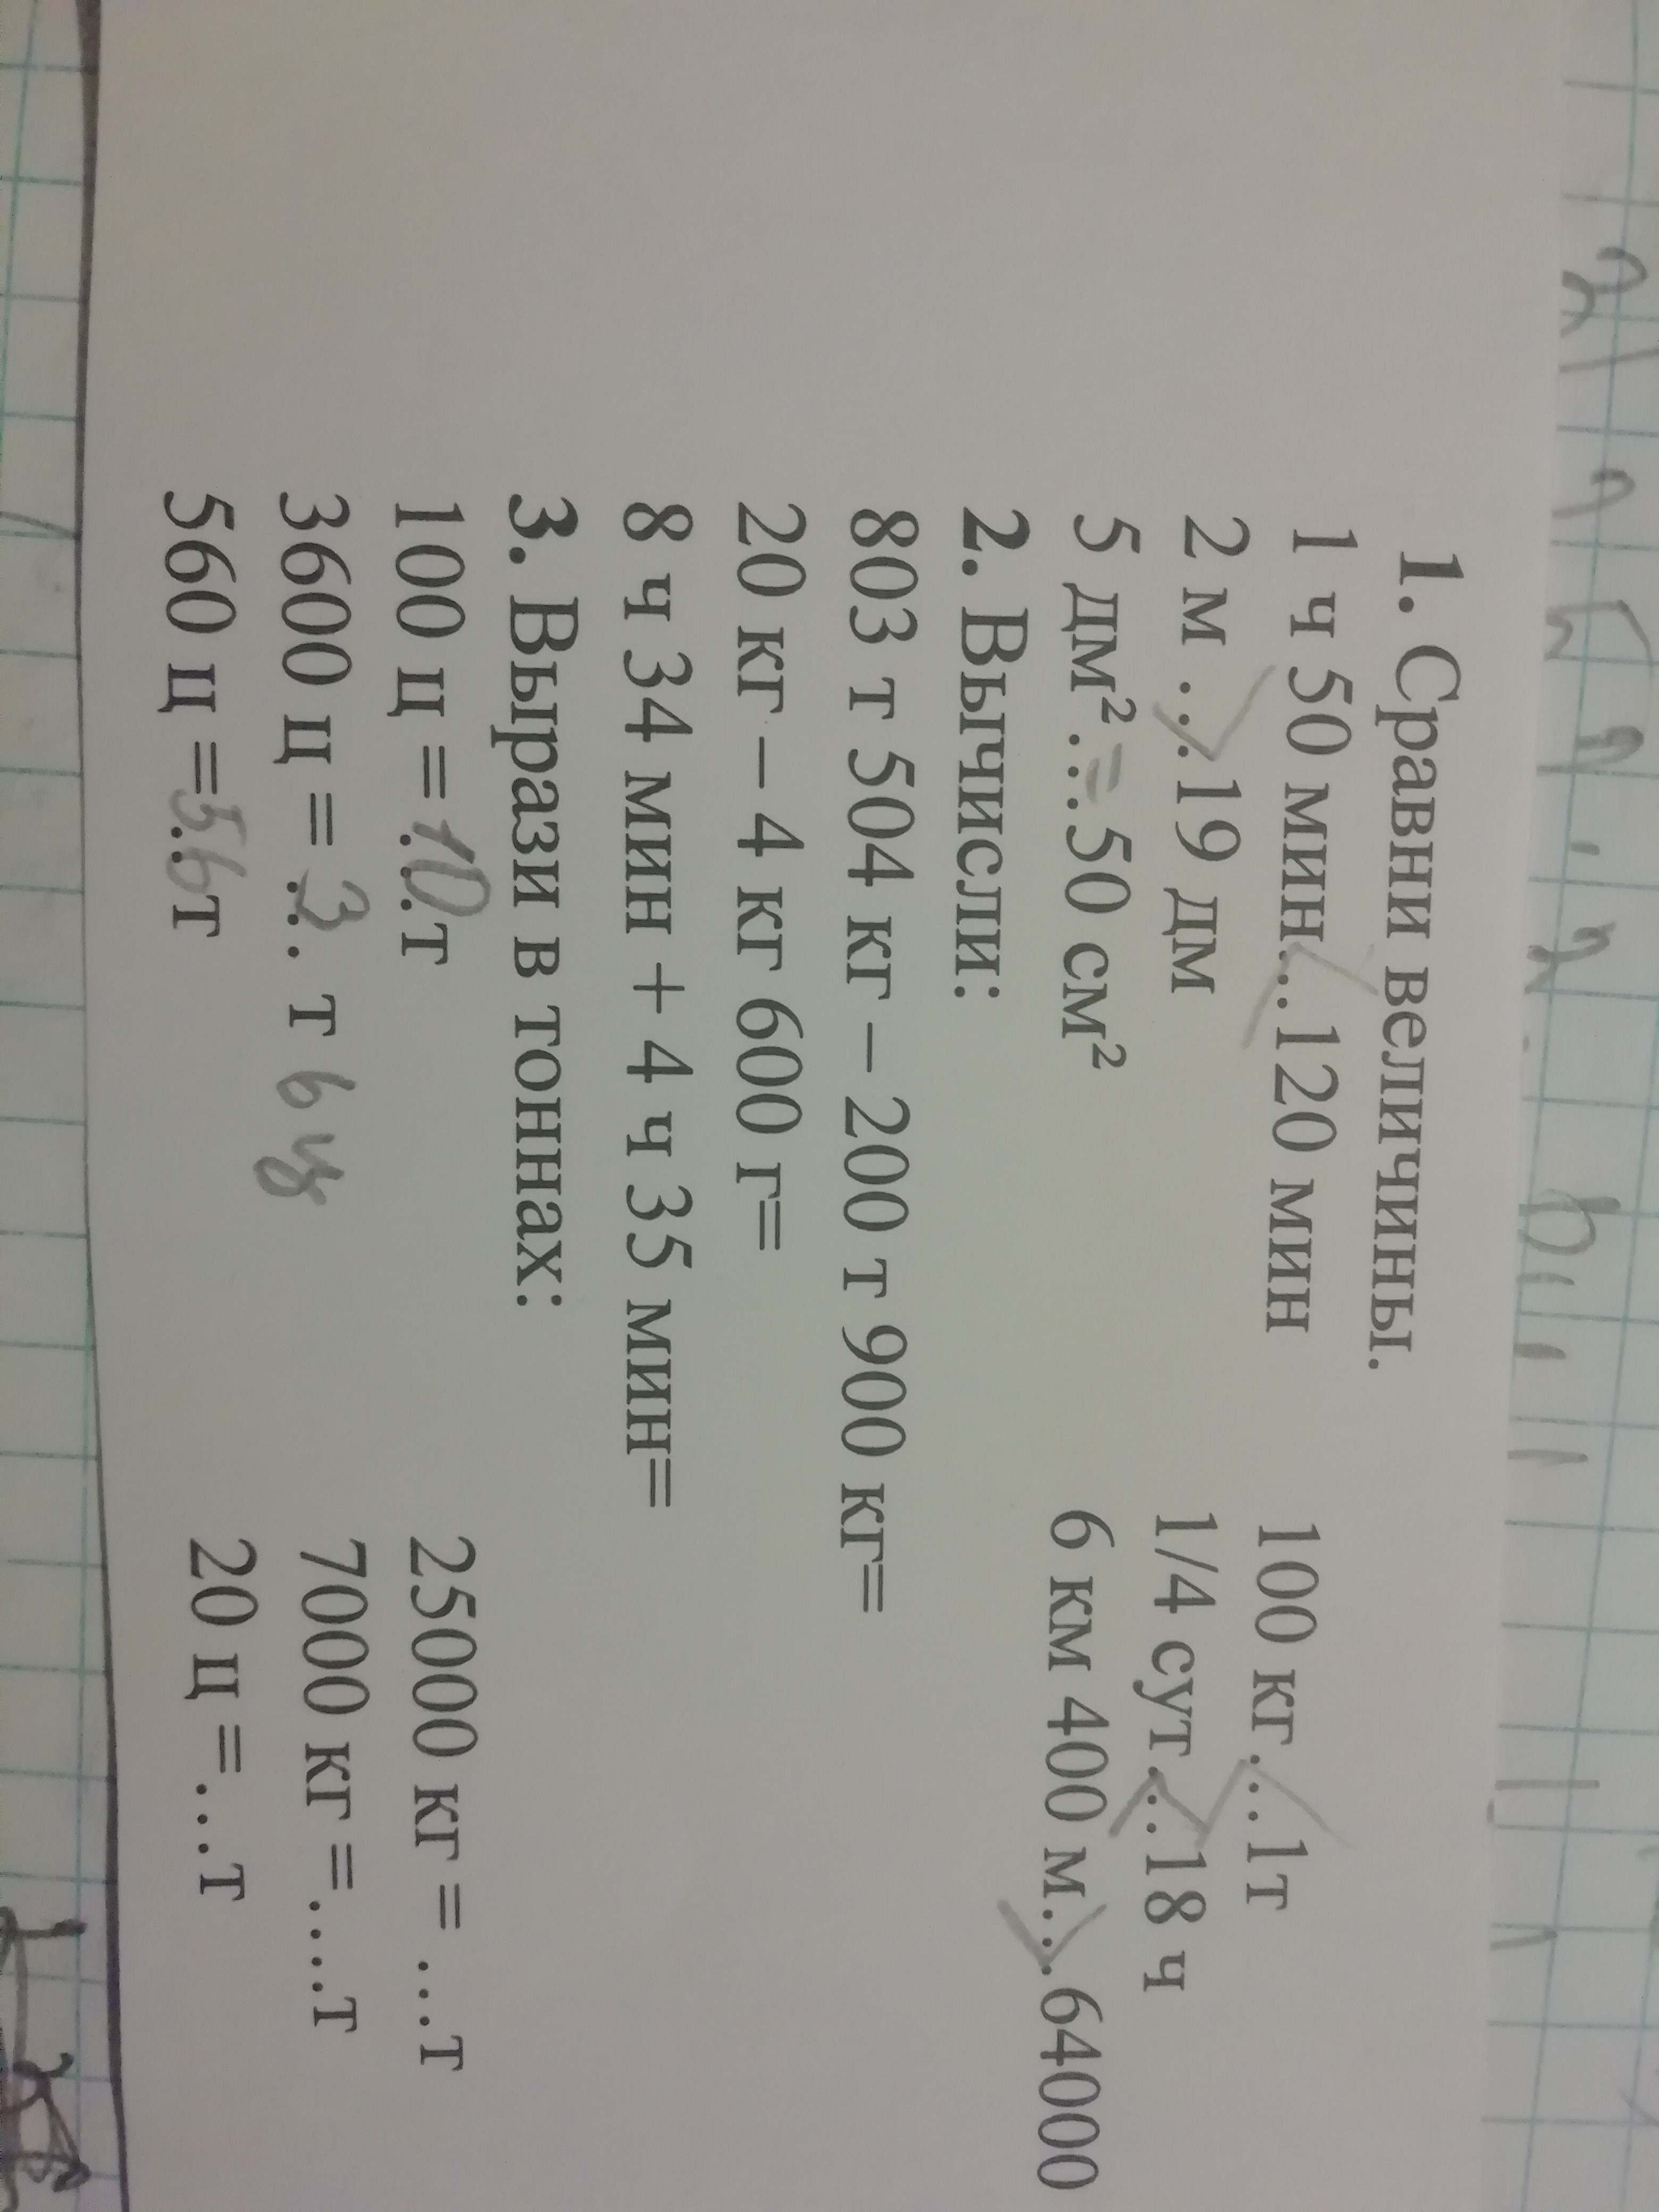 1. Сравни величины.
1 ч 50 мин<...120 мин 100 кг<...1т
2 м .>..19 дм 1/4 сут<...18 ч
5 дм².=..50 см² 6 км 400 м.>..64000
2. Вычисли:
803 т 504 кг – 200 т 900 кг=
20 кг – 4 кг 600 г=
8 ч 34 мин + 4 ч 35 мин=
3. Вырази в тоннах:
100 ц =10...т 25000 кг = ...т
3600 ц = 3... т 6 ц 7000 кг =....т
560 ц =56...т 20 ц =...т